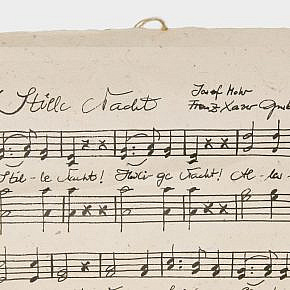 Stille Nacht
Josef Mohr
Franz Xaver Grub
Stil-le Nacht! Heili-ge Nacht! Al-les-